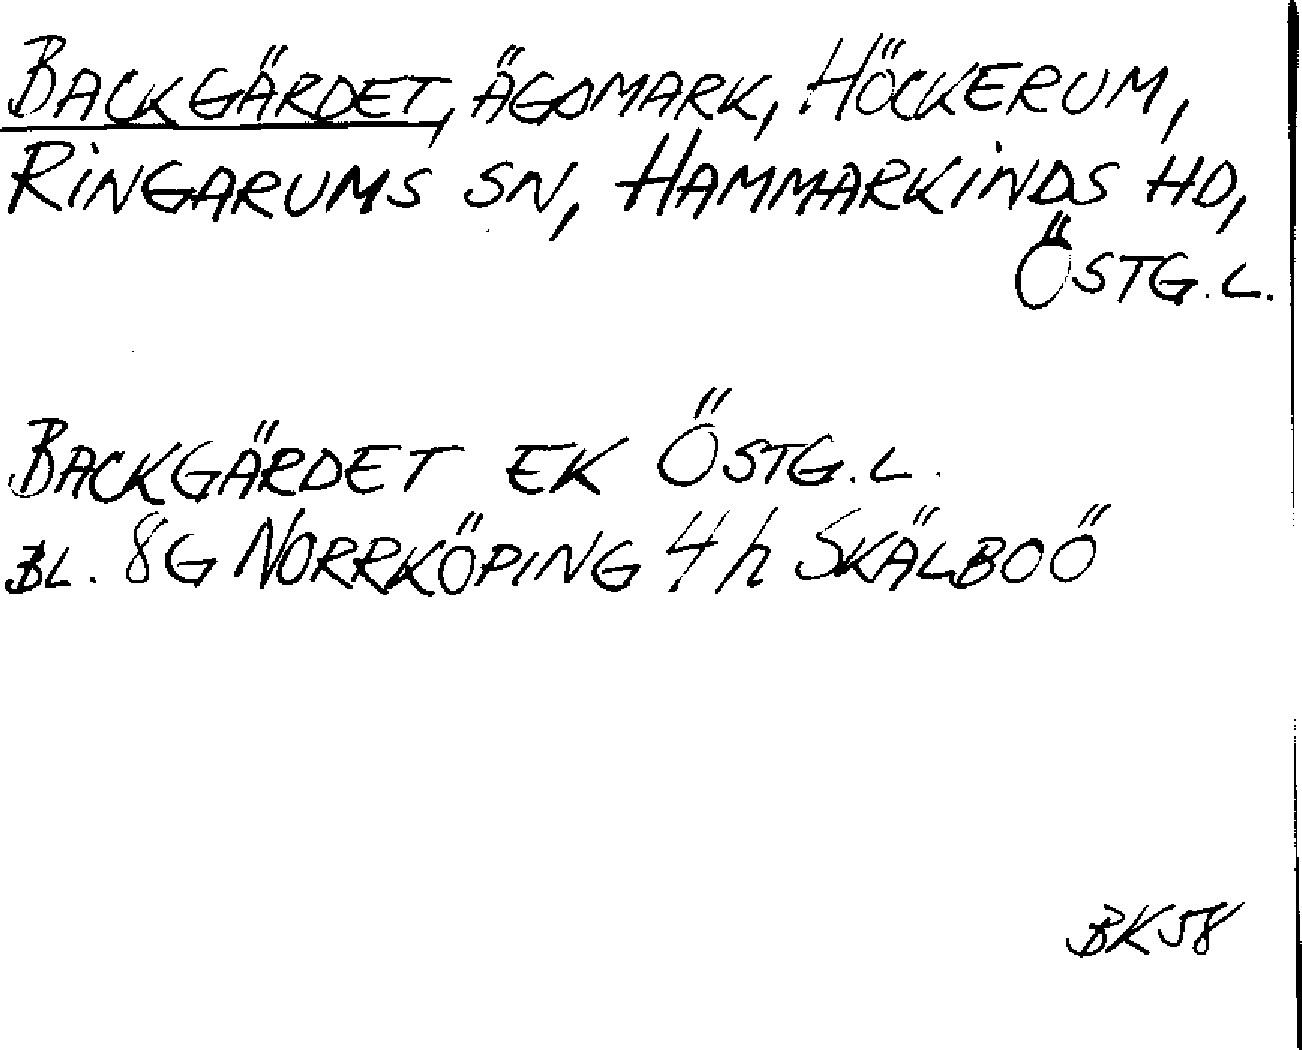 BACKGÄRDET, ÄGOMARK, HÖCKERUM,
RINGARUMS SN, HAMMARKINDS HD,
ÖSTG. L.
BACKGÄRDET EK ÖSTG. L.
BL. 8G NORRKÖPING 4 h SKÄLBOÖ
BK58